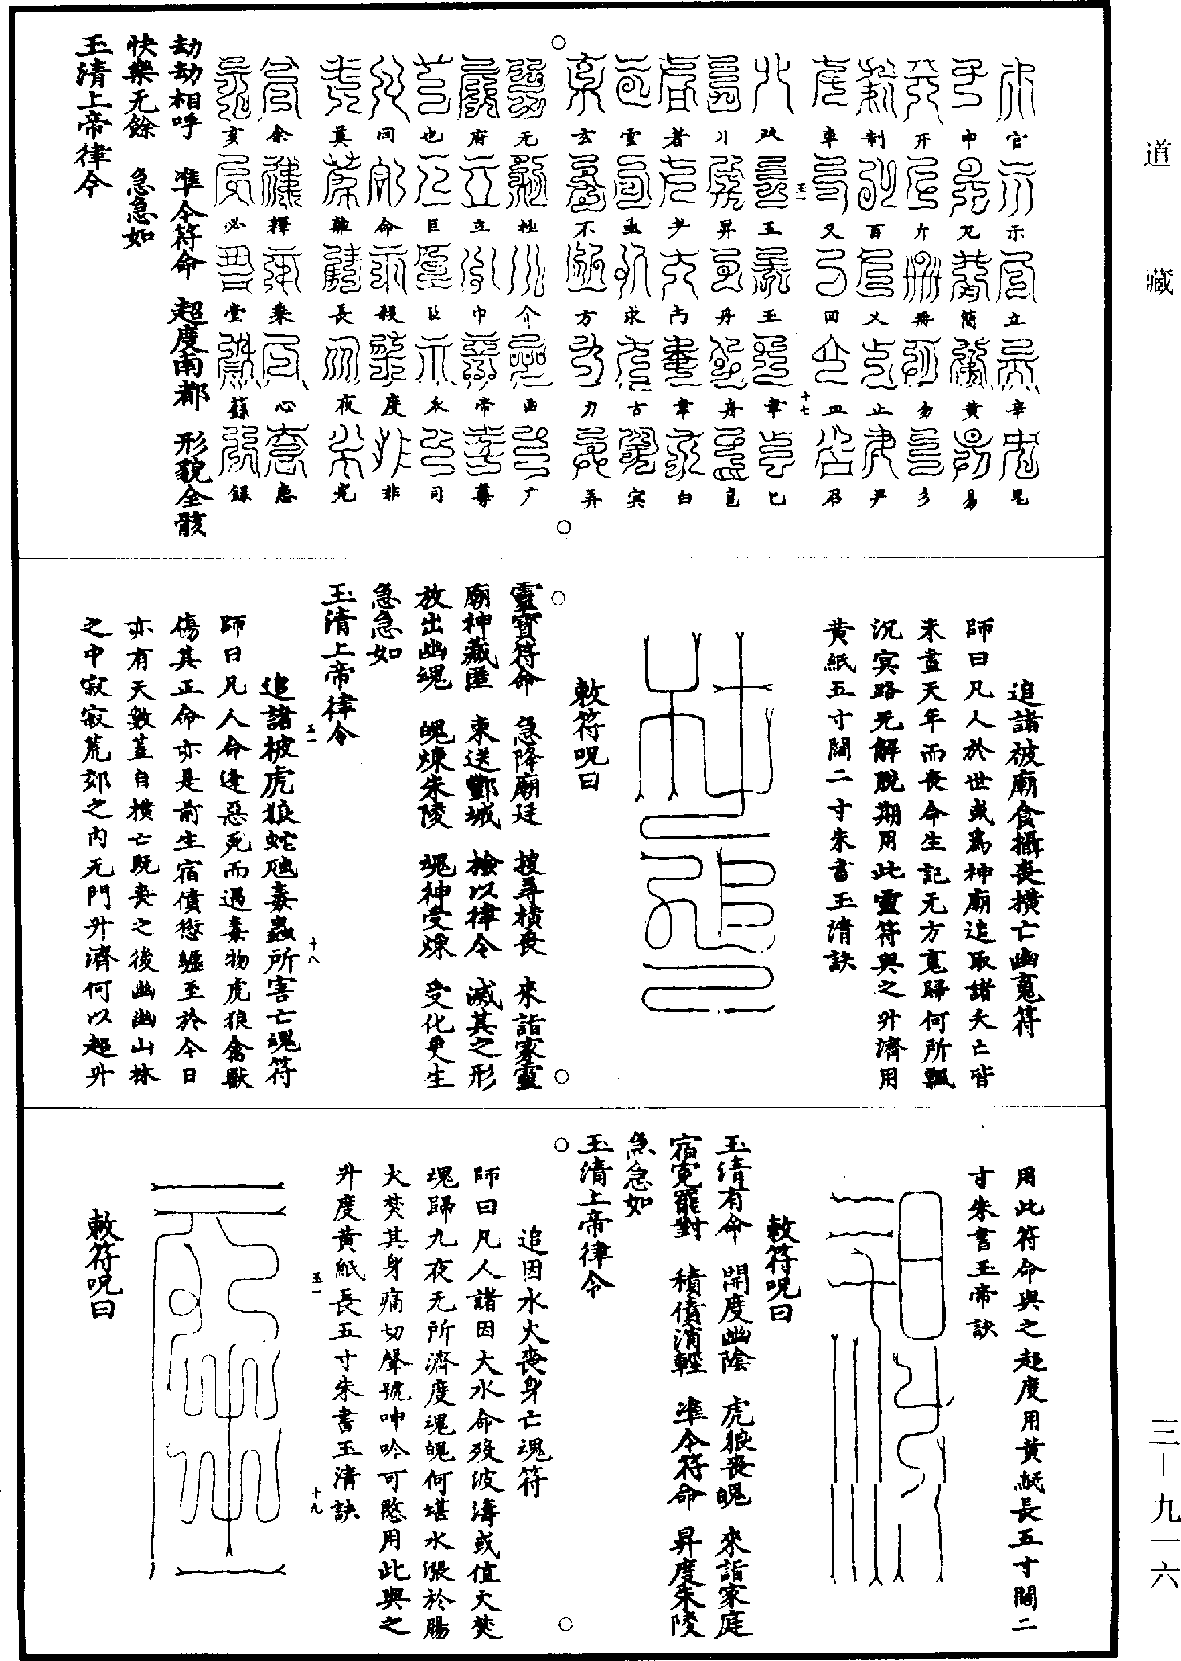 道藏
三—九一六
官 示 立 辛
中 簡 黄 易
开 斤 冊 勿 彡
制 百 乂 止 尹
車 又 回 皿 召
玉一
十七
攷 玉 王 韋 匕
刁 昇 丹 舟 邑
者 尹 韋 白
雲 幽 求 古 冥
玄 不 方 刀 弄
无 极 介 函 广
府 立 巾 帝 尊
也 巨 永 司
同 命 殺 度 非
莫 難 長 夜 光
余 擇 來 心 惠
亥 必 堂 蘇 録
劫劫相呼　準令符命　超度南都　形貌全骸
快樂无餘　急急如
玉清上帝律令
追諸被廟食攝喪橫亡幽䰟符
師曰凡人於世或為神廟追取諸夭亡皆
未盡天年而喪命生記无方䰟歸何所飄
沉冥路无解脫期用此靈符與之升濟用
黄紙五寸闊二寸朱書玉清訣
敕符呪曰
靈寶符命　急降廟廷　搜尋橫喪　來詣寒靈
廟神藏匿　束送酆城　檢以律令　滅其之形
放出幽魂　魄煉朱陵　魂神受煉　受化更生
急急如
玉清上帝律令
玉一
十八
追諸被虎狼蛇虺毒蟲所害亡魂符
師曰凡人命逢惡死而遇毒物虎狼禽獸
傷其正命亦是前生宿債愆驅至於今日
亦有天數蓋自橫亡既喪之後幽幽山林
之中寂寂荒郊之内无門升濟何以超升
用此符命與之超度用黄紙長五寸闊二
寸朱書玉帝訣
敕符呪曰
玉清有命　開度幽陰　虎狼喪魄　來詣家庭
宿冤罷對　積債消輕　準令符命　昇度朱陵
急急如
玉清上帝律令
追因水火喪身亡魂符
師曰凡人諸因大水命殁波濤或值天焚
魂歸九夜无所濟度魂魄何堪水漲於腸
火焚其身痛切聲號呻吟可愍用此與之
升度黄紙長五寸朱書玉清訣
玉一
十九
敕符呪曰